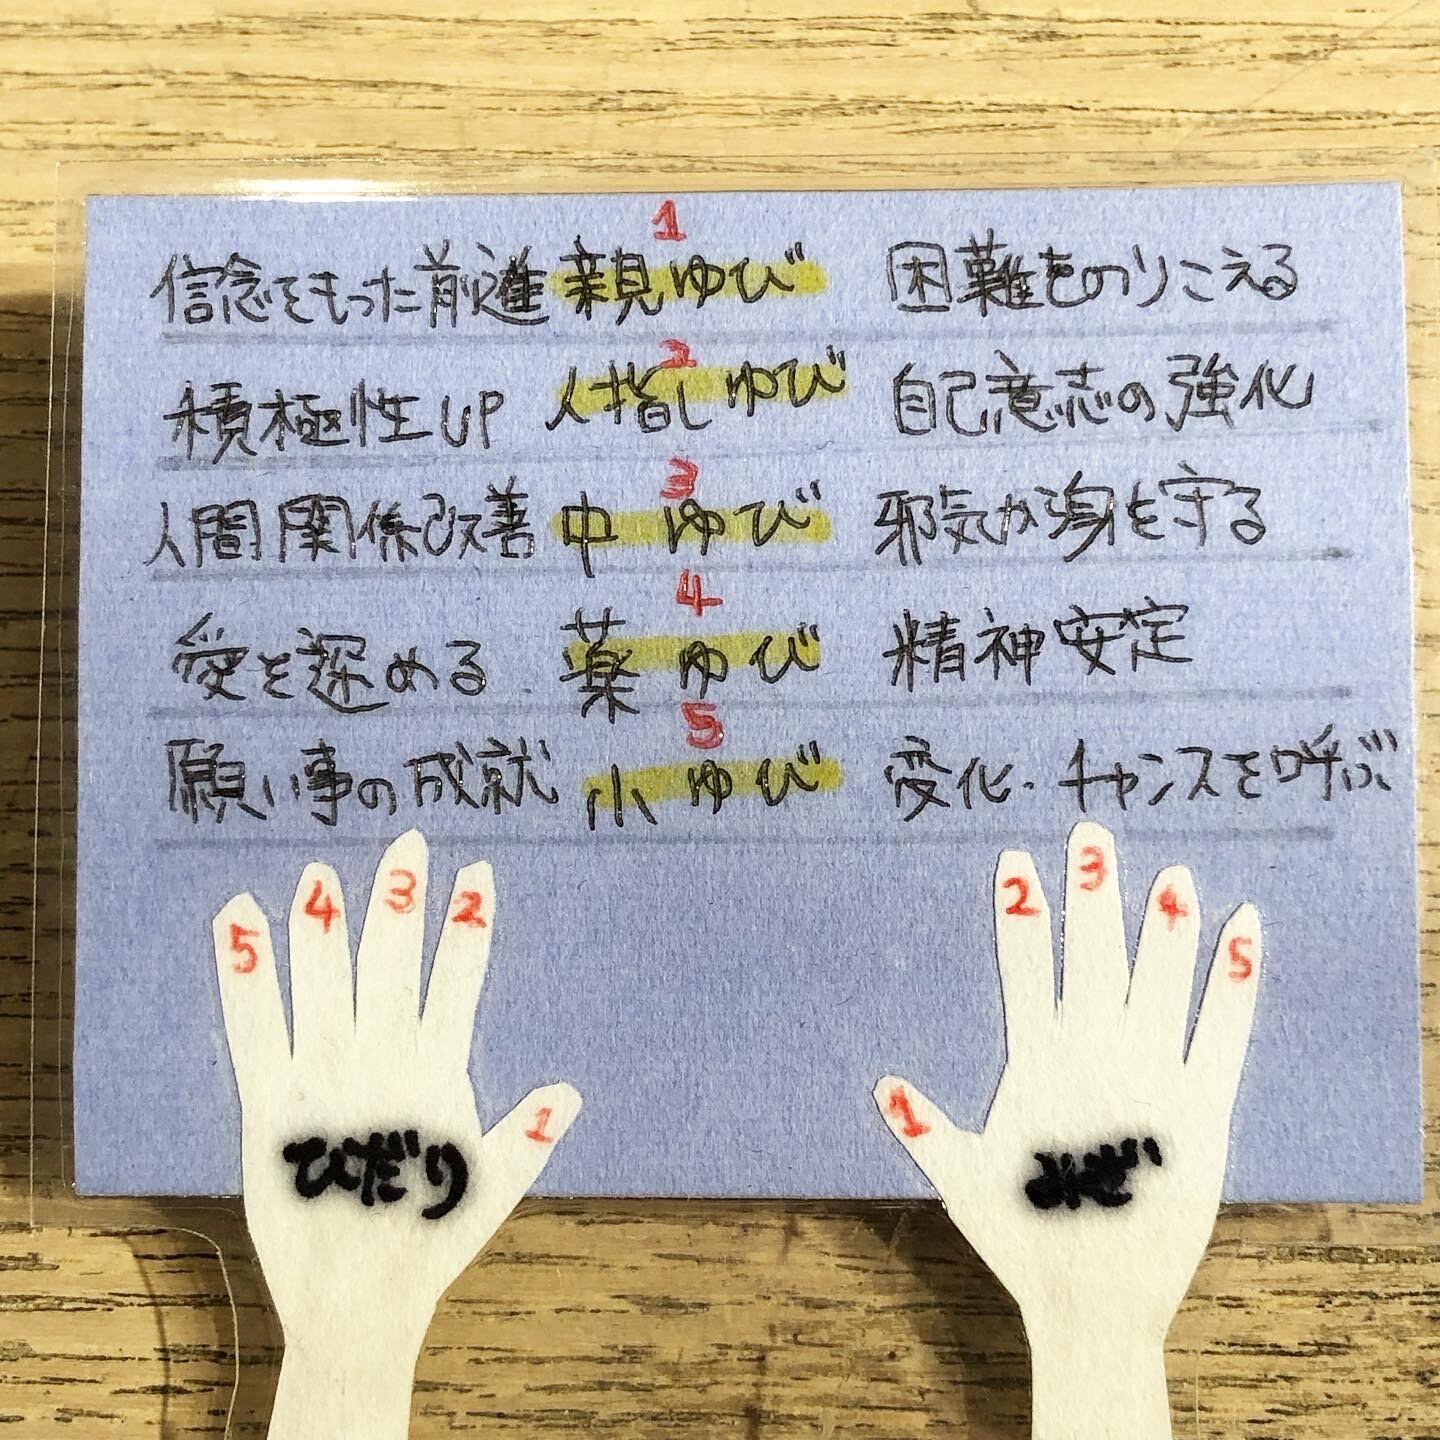 1
信念をもった前進 親ゆび 困難をのりこえる
2
積極性UP 人指しゆび 自己意志の強化
3
人間関係改善 中ゆび 邪気から身を守る
4
愛を深める 薬ゆび 精神安定
5
願い事の成就 小ゆび 変化・チャンスを呼ぶ
5 4 3 2 2 3 4 5
1 1
ひだり みぎ